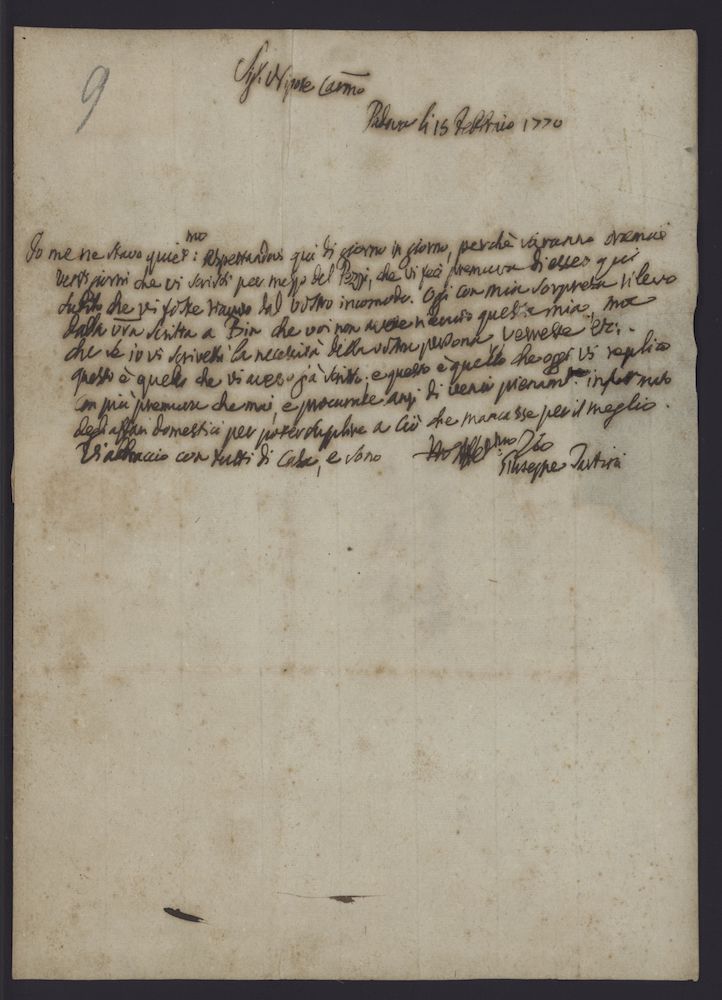 9
Sig.r Nipote Car.mo
Padova li 15 Febbraio 1770
Io me ne stavo quiet.mo aspettandovi qui di giorno in giorno, perchè saranno oramai
venti giorni che vi scrissi per mezzo del Pezzi, che vi feci premura di essere qui
subito che vi foste riavuto dal vostro incomodo. Ogi con mia sorpresa rilevo
dalla vr̃a scritta a Bin che voi non avete ricevuto questa mia, ma
che se io vi scrivessi la necessità della vostra persona verreste etc.
questo è quello che vi avevo già scritto, e questo è quello che oggi vi replico
con più premura che mai, e procurate anzi di venir pienam.te informato
degli affari domestici per poter supplire a ciò che mancasse per il meglio.
Vi abbraccio con tutti di Casa, e sono
Vostro Aff.mo Zio
Giuseppe Tartini